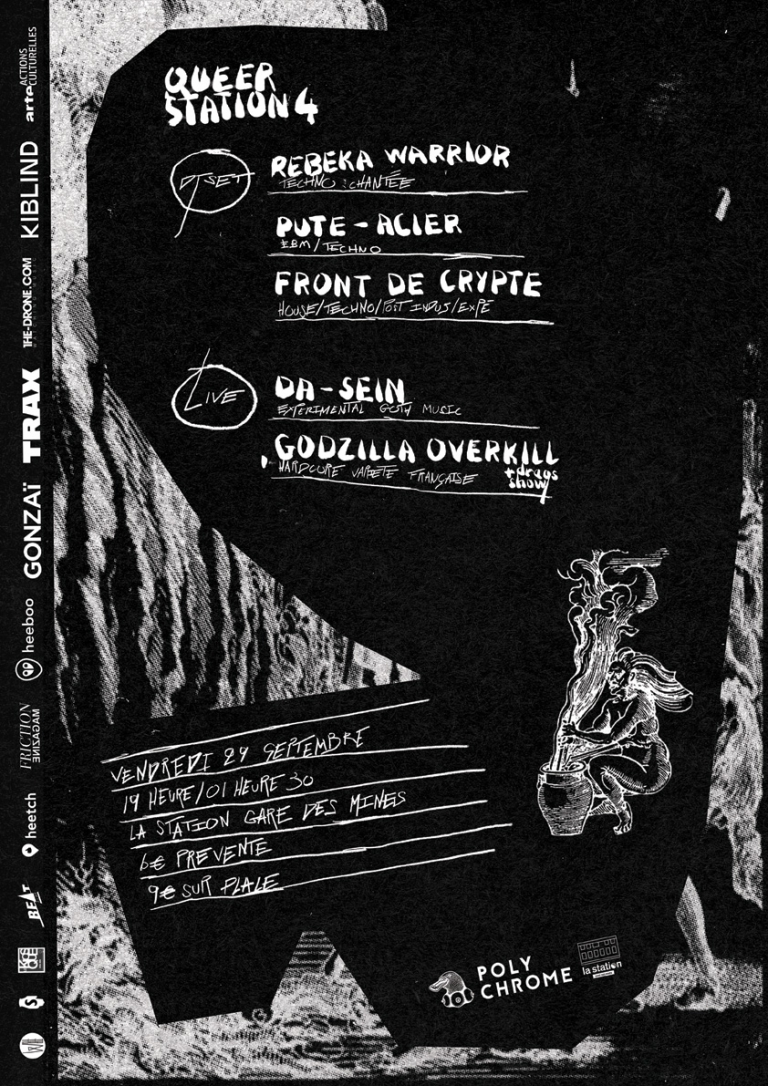 QUEER
STATION 4
DJ SET
REBEKA WARRIOR
TECHNO CHANTÉE
PUTE-ACIER
EBM/TECHNO
FRONT DE CRYPTE
HOUSE/TECHNO/POST INDUS/EXPÉ
LIVE
DA-SEIN
EXTERIMENTAL GOTH MUSIC
GODZILLA OVERKILL
HARDCORE VARIÉTÉ FRANÇAISE
+ drags
show
VENDREDI 29 SEPTEMBRE
19 HEURE/01 HEURE 30
LA STATION GARE DES MINES
6€ PREVENTE
9€ SUR PLACE
POLY
CHROME
la station
arte ACTIONS
CULTURELLES
KIBLIND
THE-DRONE.COM
TRAX
GONZAÏ
heeboo
FRICTION
MAGAZINE
heetch
BEAT